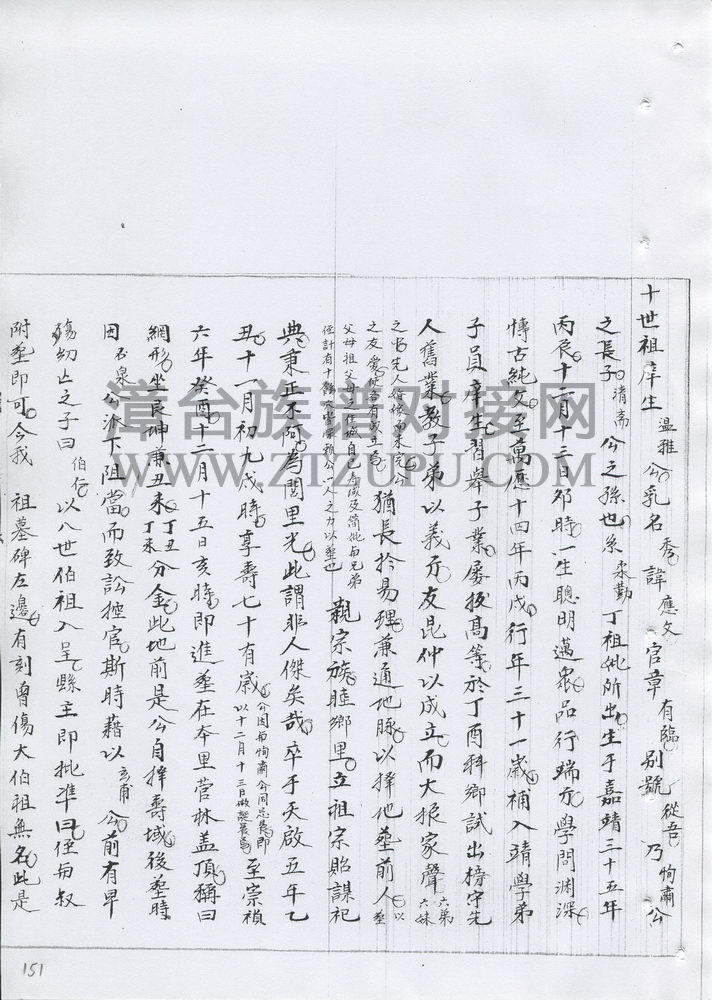 十世祖庠生温雅公乳名秀諱應文 官章有臨 别號從吾 乃恂肅公
之長子清斋公之孫也系柔勤丁祖妣所出生于嘉靖三十五年
丙辰十二月十三日卯時一生聰明邁衆品行端方學問渊深
博古純文至萬歷十四年丙戌行年三十一歲補入靖學弟
子員庠生習舉子業屡拔高等於丁酉科鄉試出榜守先
人舊業教子弟以義方友昆仲以成立而大振家聲六弟六妹
猶長於易理兼通地脉以擇地塟前人
親宗族睦鄉里立祖宗貽謀祀
典秉正不阿為閭里光此謂非人傑矣哉卒于天啟五年乙
丑十一月初九戌時享壽七十有歲以十二月十三日做誕辰焉至崇禎
六年癸酉十二月十五日亥時即進塟在本里营林盖頂稱曰
網形坐艮坤兼丑未丁丑丁未分金此地前是公自擇壽域後塟時
因石泉公派下阻當而致訟控官斯時藉以亥甫公前有早
殤幼亡之子曰伯行以八世伯祖入呈縣主即批準曰侄與叔
附塟即可今我 祖墓碑左邊有刻曾傷大伯祖無名此是
道台族谱对接网
WWW.ZTZUPU.COM
151